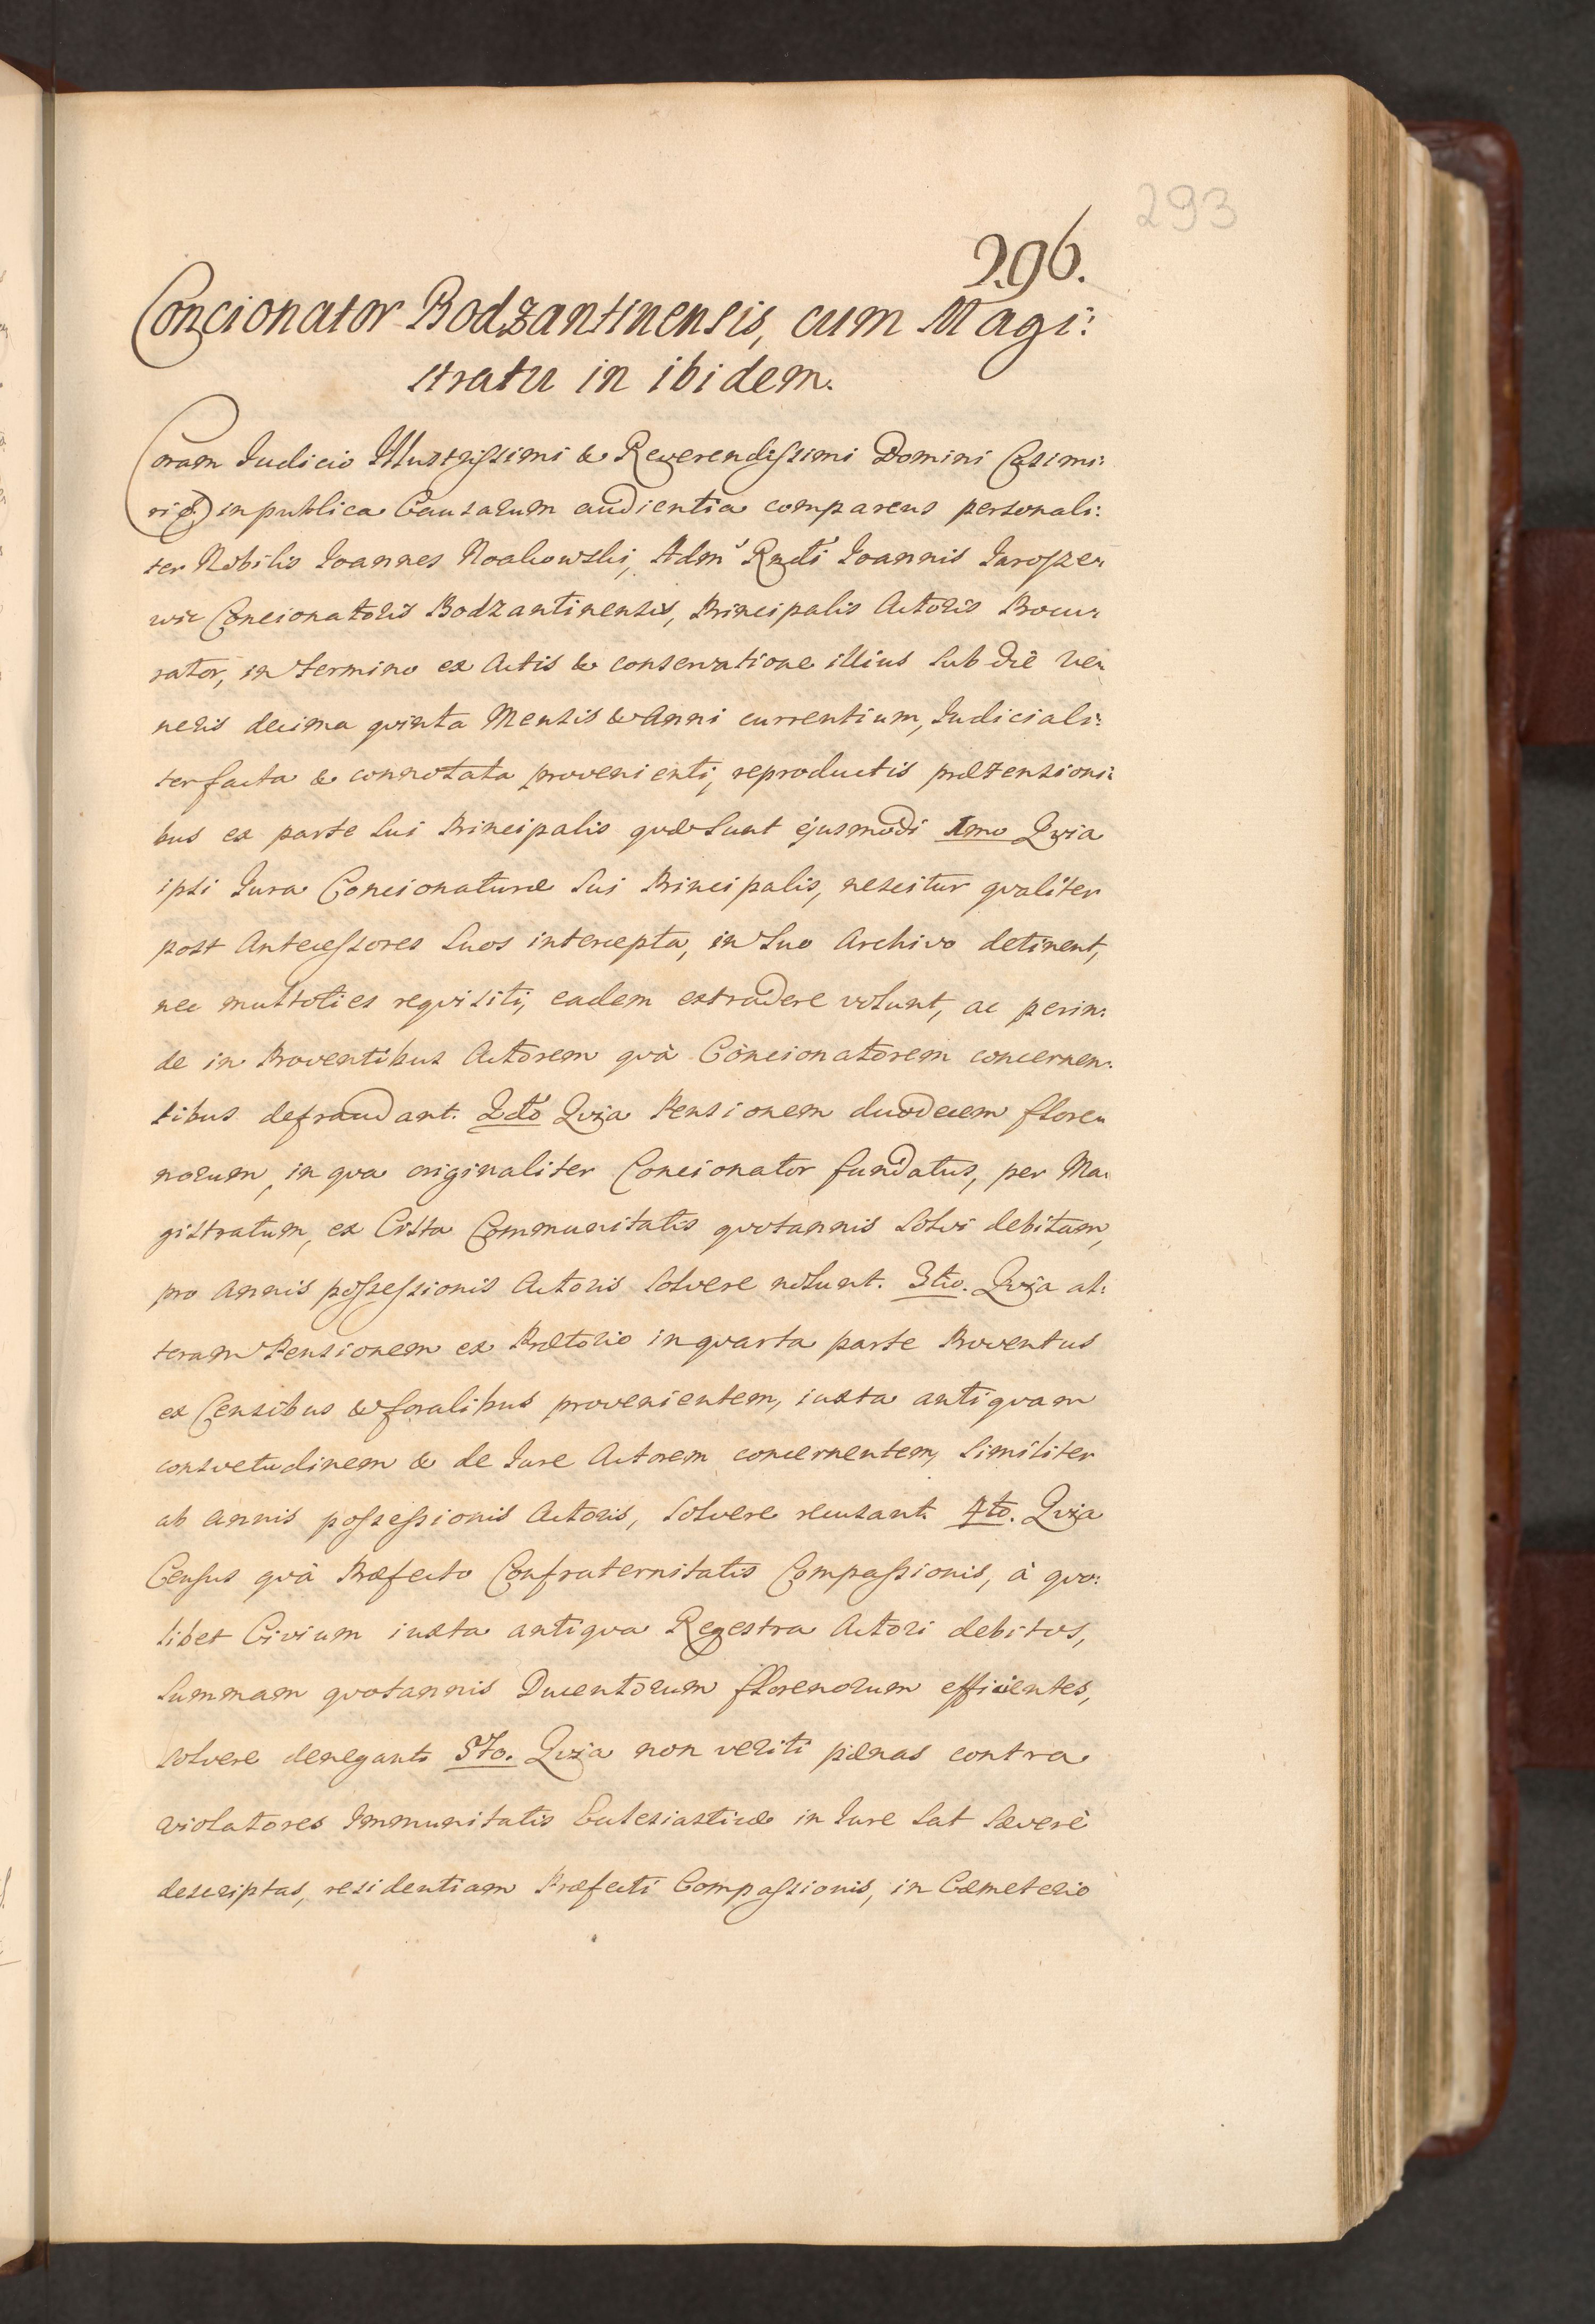 293
296.
Concionator Bodzantinensis, cum Magi:
stratu in ibidem.
Coram Iudicio Illustrissimi & Reverendissimi Domini Casimi:
ri &) in publica Causarum audientia comparens personali:
ter Nobilis Ioannes Noakowski, Adm Rndi Ioannis Iarosze:
wic Concionatoris Bodzantinensis, Principalis Actoris Procu:
rator, in termino ex Actis & conservatione illius sub die Ve:
neris decima qvinta Mensis & Anni currentium, Iudiciali:
ter facta & connotata provenienti, reproductis prætensioni:
bus ex parte sui Principalis qvæ sunt ejusmodi 1mo Qvia
ipsi Iura Concionaturæ sui Principalis, nescitur qvaliter
post Antecessores suos intercepta, in suo Archivo detinent,
nec multoties reqvisiti, eadem extradere volunt, ac perin:
de in Proventibus Actorem qvà Concionatorem concernen:
tibus defraudant. 2do Qvia Pensionem duodecem flore:
norum, in qva originaliter Concionator fundatus, per Ma:
gistratum, ex Cista Communitatis qvotannis solvi debitam,
pro Annis possessionis Actoris solvere nolunt. 3tio. Qvia al:
teram Pensionem ex Prætorio in qvarta parte Proventus
ex Censibus & foralibus provenientem, iuxta antiqvam
consvetudinem & de Iure Actorem concernentem, similiter
ab annis possessionis Actoris, solvere recusant. 4to. Qvia
Census qvà Præfecto Confraternitatis Compassionis, à qvo:
libet Civium iuxta antiqva Regestra Actori debitos,
summam qvotannis Ducentorum florenorum efficientes,
solvere denegant. 5to. Qvia non veriti pænas contra
violatores Immunitatis Ecclesiasticæ in Iure sat sæverè
descriptas, residentiam Præfecti Compassionis, in Cæmeterio